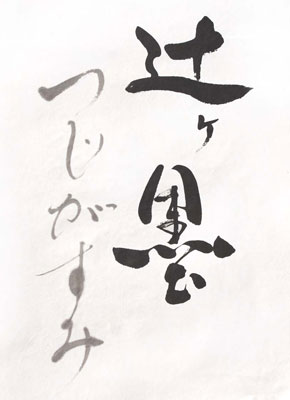 辻ヶ墨
つじがすみ